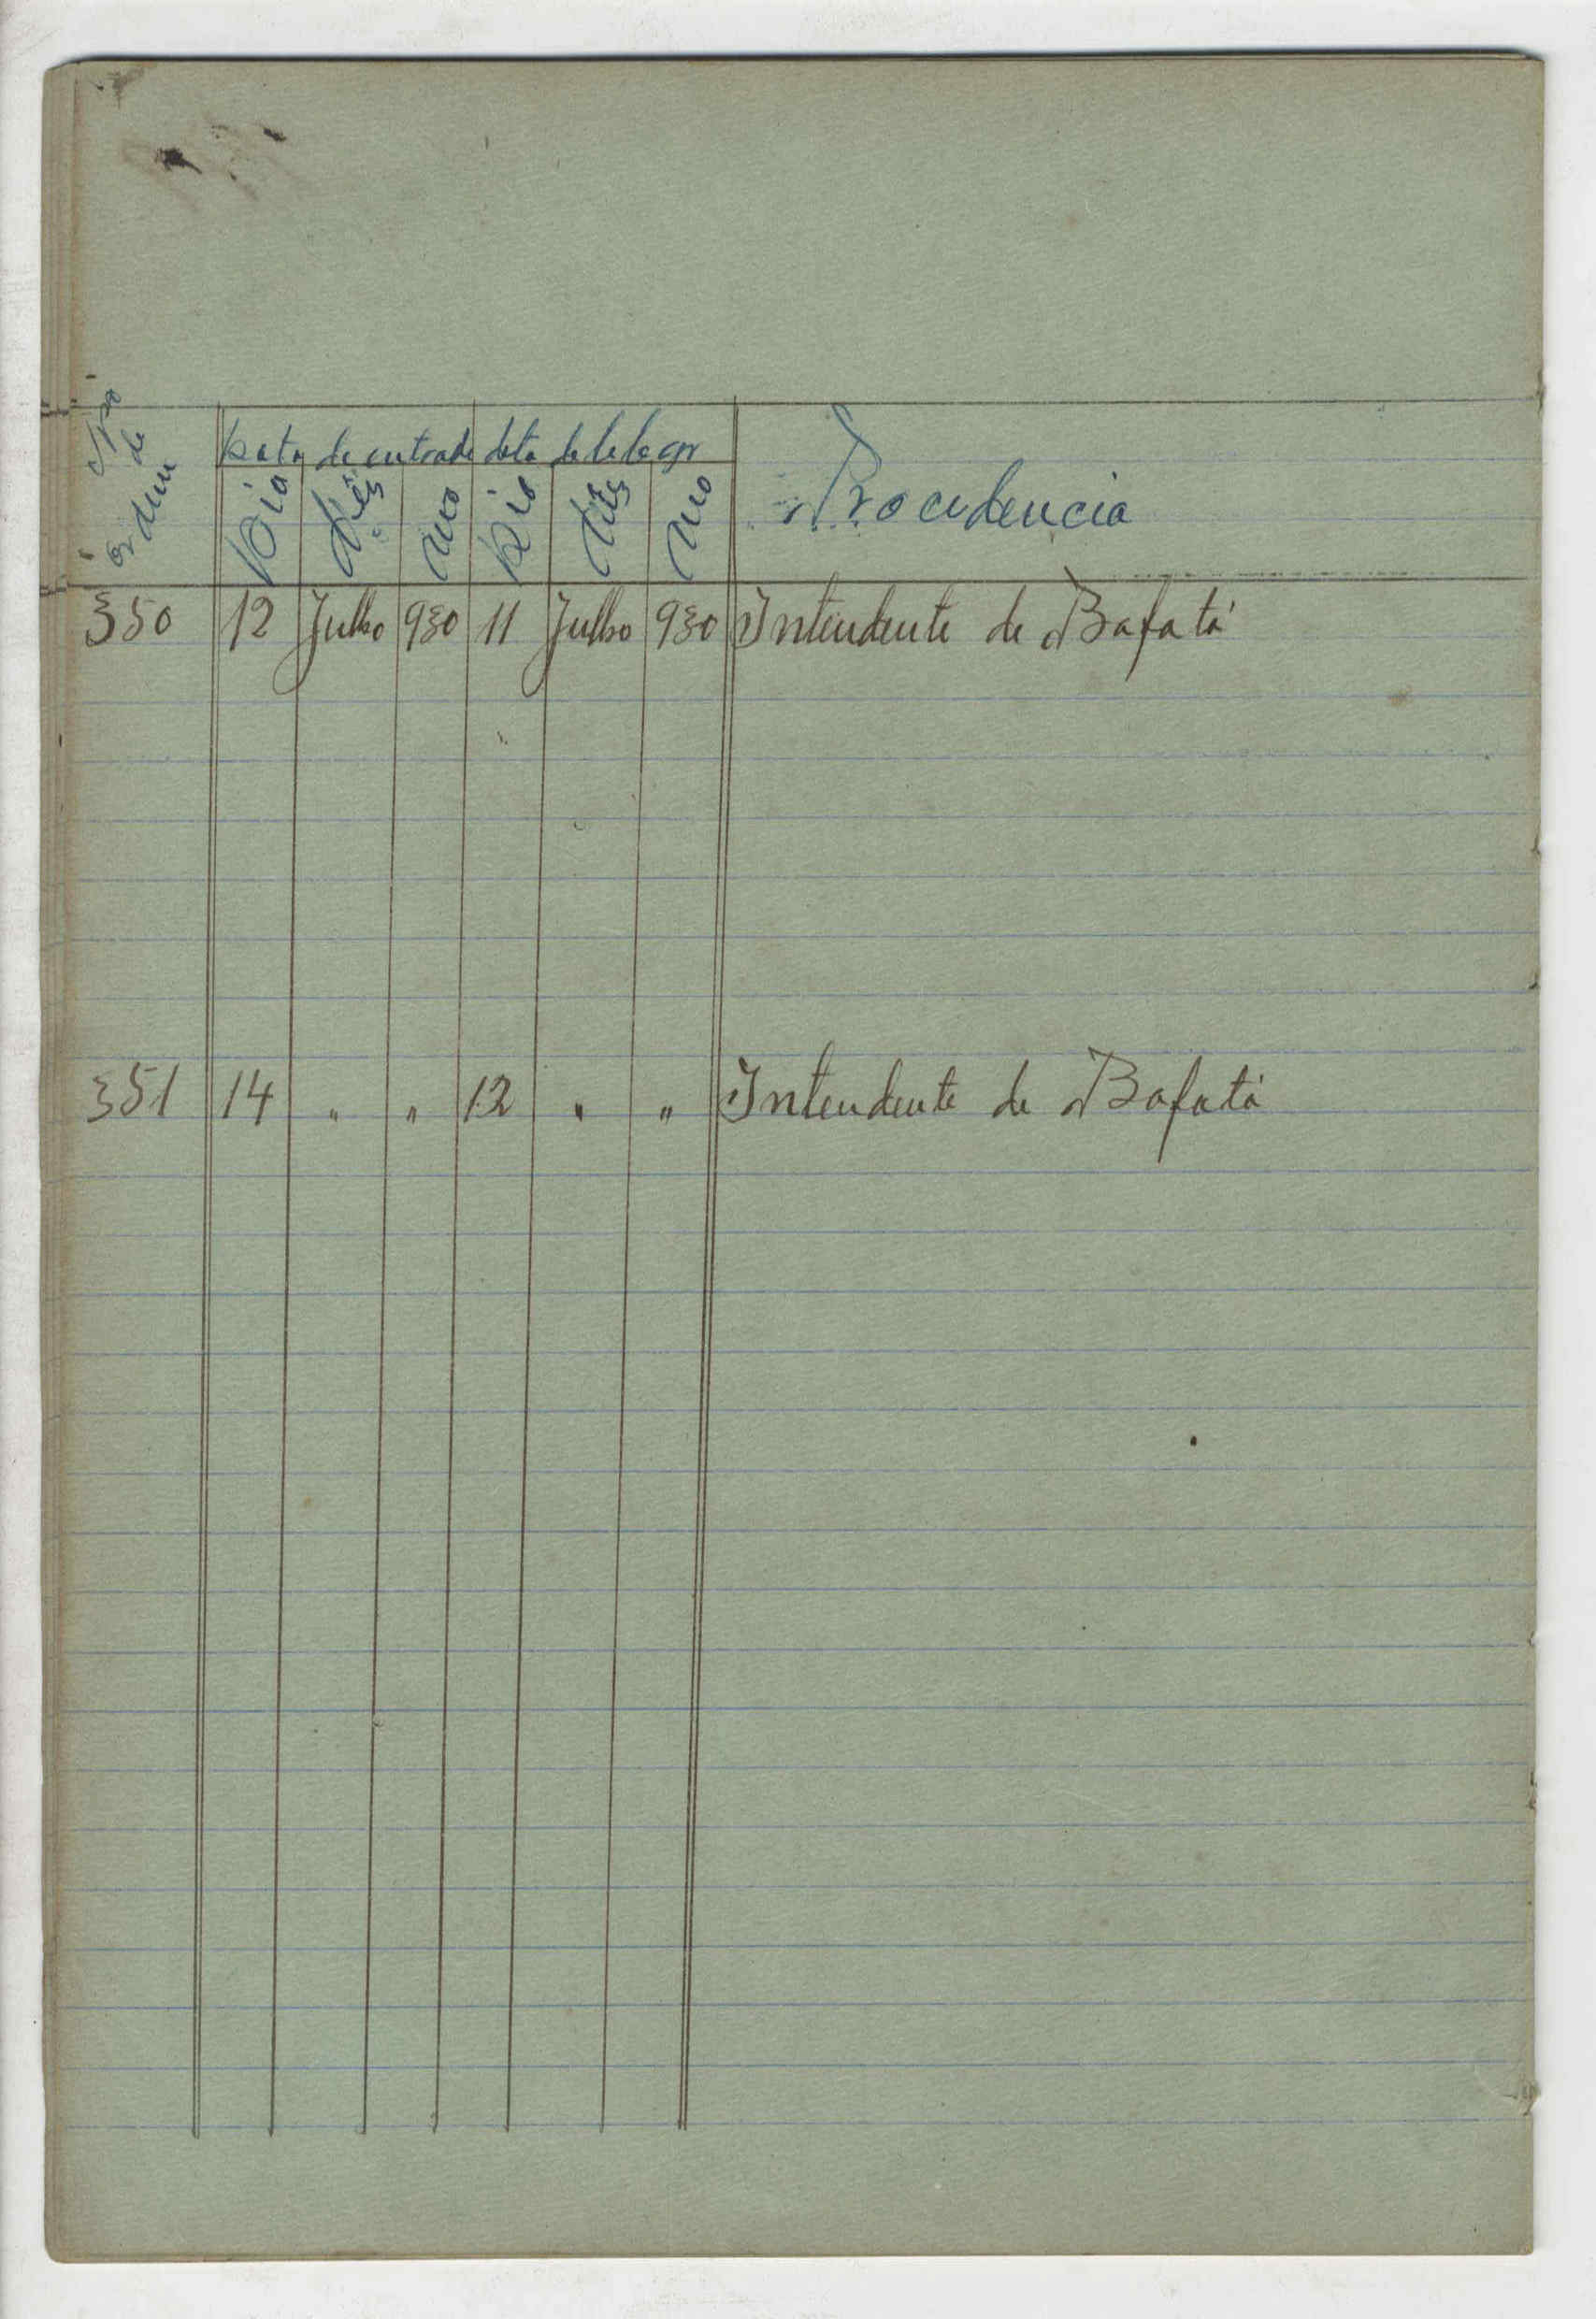 Nro de ordem
Data de entrada data de telegr Procedencia
Dia Mês Ano Dia Mês Ano
350 12 Julho 930 11 Julho 930 Intendente de Bafatá
351 14 " " 12 " " Intendente de Bafatá